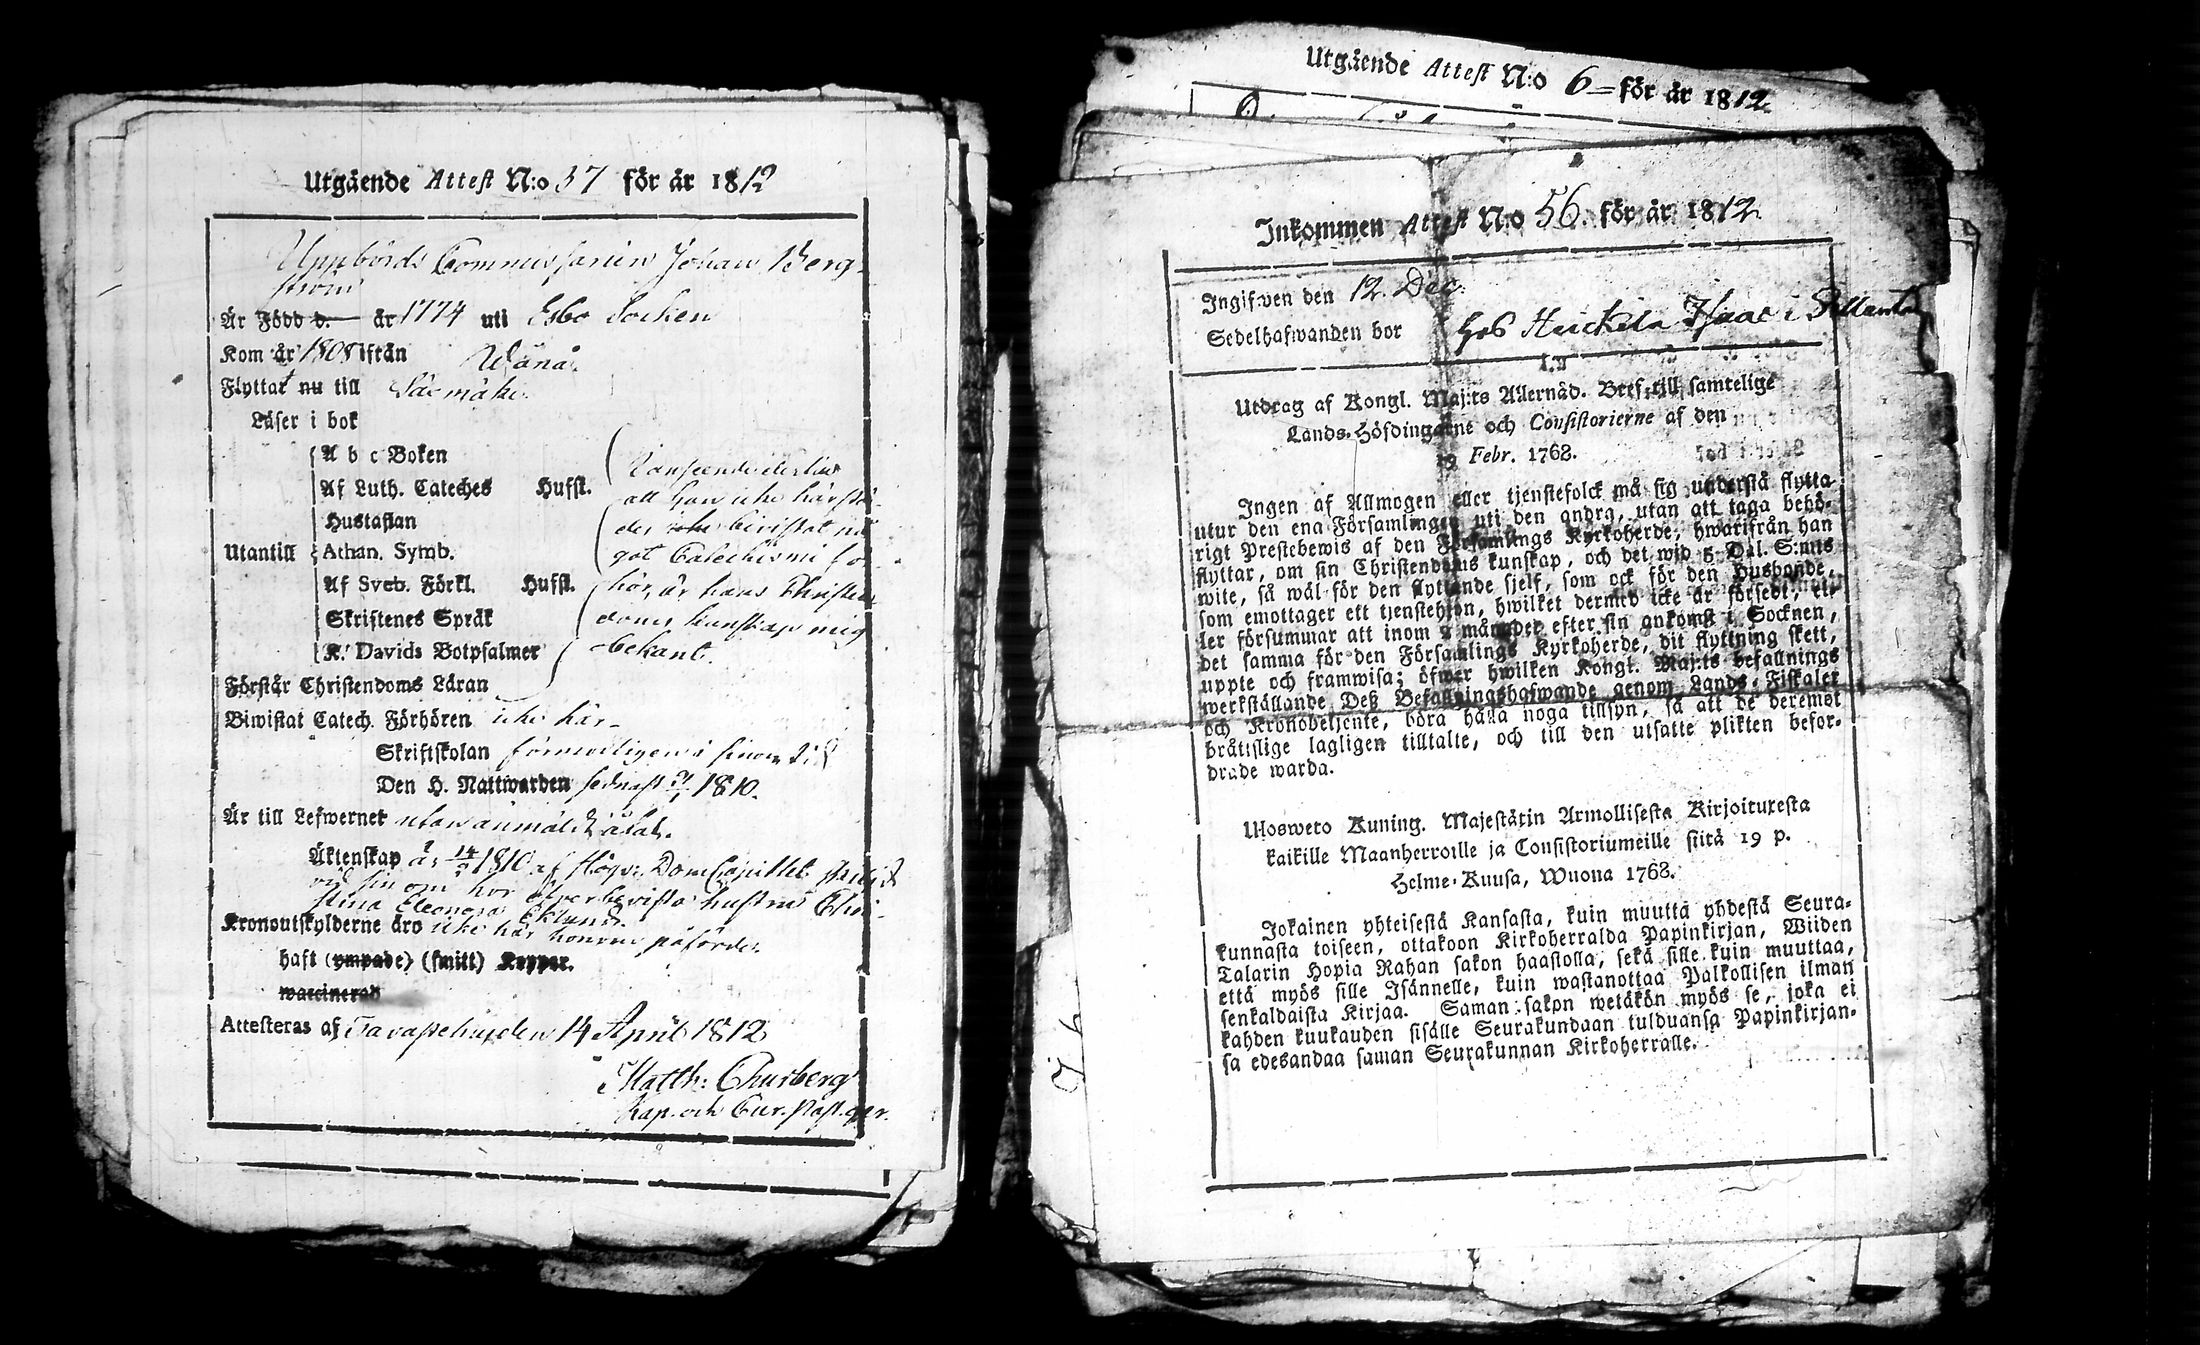 Utgående Attest N:o 37 för år 1812
Uppbörds Commissarien Johan Berg-
ström
Är Född d. år 1774 uti Esbo Socken
Kom år 1808 ifrån Wånå.
Flyttat nu till Säxmäki.
Läser i bok
A b c Boken
Af Luth. Cateches Hufst.
Hustaflan
Utantill Athan. Symb.
Af Sveb. Förkl. Hufst.
Skriftenes Språk
K. Davids Botpsalmer
att han icke härstä-
des icke bivistat nå
got Catechismi för-
hör, är hans Christen
doms kunskap mig
obekant.
Förstår Christendoms Läran
Biwistat Catech. Förhören icke här
Skriftskolan förmodligen i sinom tid
Den H. Nattwarden sednast 1810.
Är till Lefwernet utan anmäldt åtal.
Äktenskap år 1810 af Högv. DomCapitlet
hustru Chri-
stina Eleonora Eklund.
Kronoutskylderne äro icke här honom påförde.
haft (ympade) (smitt) Koppor.
waccinerad
Attesteras af Tavastehus den 14 April 1812
Matth: Churberg
Kap. och Cur. past. gr.
Utgående Attest N:o 6 för år 1812
Inkommen Attest N:o 56. för år 1812
Ingifwen den 12 Dec.
Sedelhafwanden bor hos Heickilä Isaac i
Utdrag af Kongl. Maj:ts Allernåd. Bref till samtelige
Lands-Höfdingarne och Consistorierne af den
19 Febr. 1768.
Ingen af Allmogen eller tjenstefolck må sig understå flytta
utur den ena Församlingen uti den andra, utan att taga behö-
rigt Prestebewis af den Församlings Kyrkoherde, hwarifrån han
flyttar, om sin Christendoms kunskap, och det wid 5 Dal. S:mts
wite, så wäl för den flyttande sjelf, som ock för den Husbonde,
som emottager ett tjenstehjon, hwilket dermed icke är försedt, el-
ler försummar att inom 2 månader efter sin ankomst i Socknen,
det samma för den Församlings Kyrkoherde, dit flyttning skett,
uppte och framwisa; öfwer hwilken Kongl. Maj:ts befallnings
werkställande Deß Befallningshafwande genom Lands-Fiskaler
och Kronobetjente, böra hålla noga tillsyn, så att de deremot
bråttslige lagligen tilltalte, och till den utsatte plikten befor-
drade warda.
Ulosweto Kuning. Majestätin Armollisesta Kirjoituxesta
kaikille Maanherroille ja Consistoriumeille siitä 19 p.
Helme-Kuusa, Wuona 1768.
Jokainen yhteisestä Kansasta, kuin muutta yhdestä Seura-
kunnasta toiseen, ottakoon Kirkoherralda Papinkirjan, Wiiden
Talarin Hopia Rahan sakon haastolla, sekä sille kuin muuttaa,
että myös sille Isännelle, kuin wastanottaa Palkollisen ilman
senkaldaista Kirjaa. Saman sakon wetäkön myös se, joka ei
kahden kuukauden sisälle Seurakundaan tulduansa Papinkirjan-
sa edesandaa saman Seurakunnan Kirkoherralle.